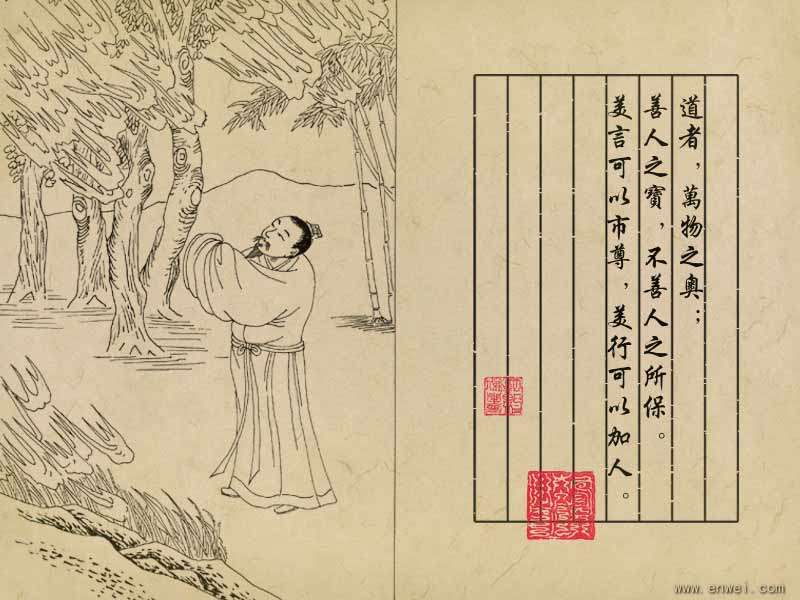 道者，萬物之奧；
善人之寶，不善人之所保。
美言可以市尊，美行可以加人。
www.enwei.com